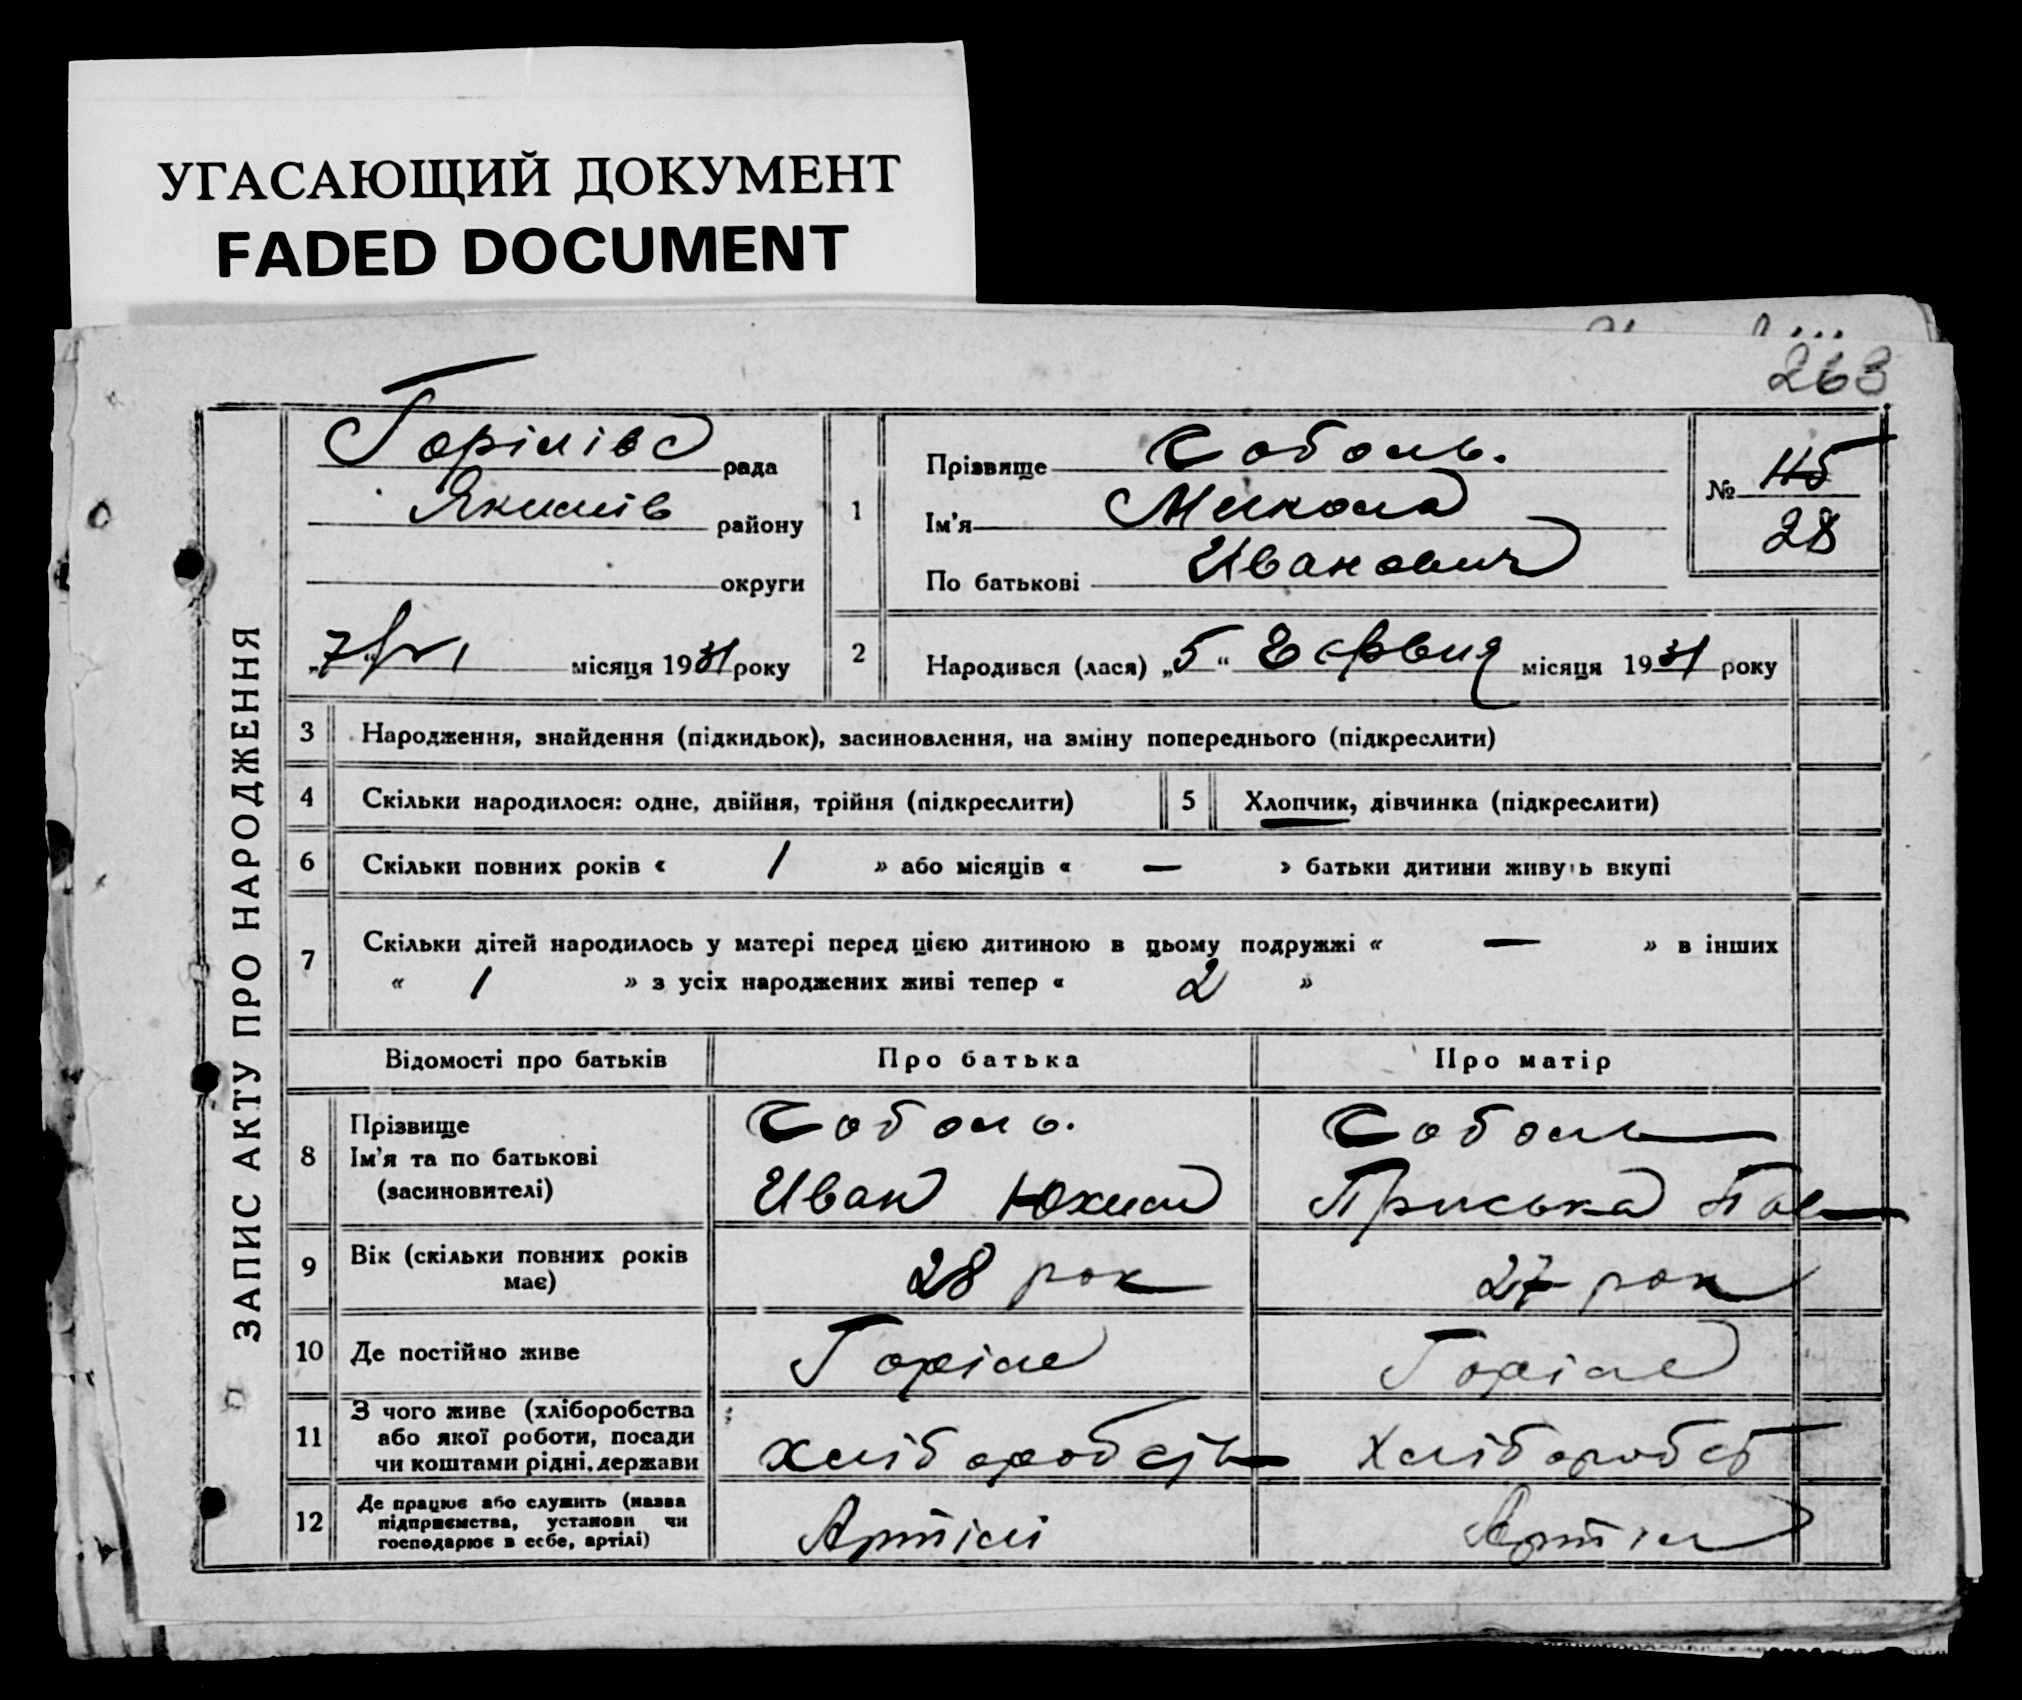 УГАСАЮЩИЙ ДОКУМЕНТ
FADED DOCUMENT
263
ЗАПИС АКТУ ПРО НАРОДЖЕННЯ
Горілівс рада
Якимів району
округи
„7“ місяця 1931 року
1
Прізвище Соболь.
Ім'я Микола
По батькові Иванович
№ 115
28
2
Народився (лася) „5“ місяця 1931 року
3 Народження, знайдення (підкидьок), засиновлення, на зміну попереднього (підкреслити)
4 Скільки народилося: одне, двійня, трійня (підкреслити) 5 Хлопчик, дівчинка (підкреслити)
6 Скільки повних років « 1 » або місяців « — » батьки дитини живуть вкупі
7 Скільки дітей народилось у матері перед цією дитиною в цьому подружжі « — » в інших
« 1 » з усіх народжених живі тепер « 2 »
Відомості про батьків Про батька Про матір
8 Прізвище Соболь. Соболь
Ім'я та по батькові
(засиновителі) Иван ЮхимПриська Пав
9 Вік (скільки повних років
має) 28 рок 27 рок
10 Де постійно живе Горіле Горіле
11 З чого живе (хліборобства
або якої роботи, посади
чи коштами рідні, держави хліборобств хліборобст
12 Де працює або служить (назва
підприємства, установи чи
господарює в себе, артілі) Артілі Артіл